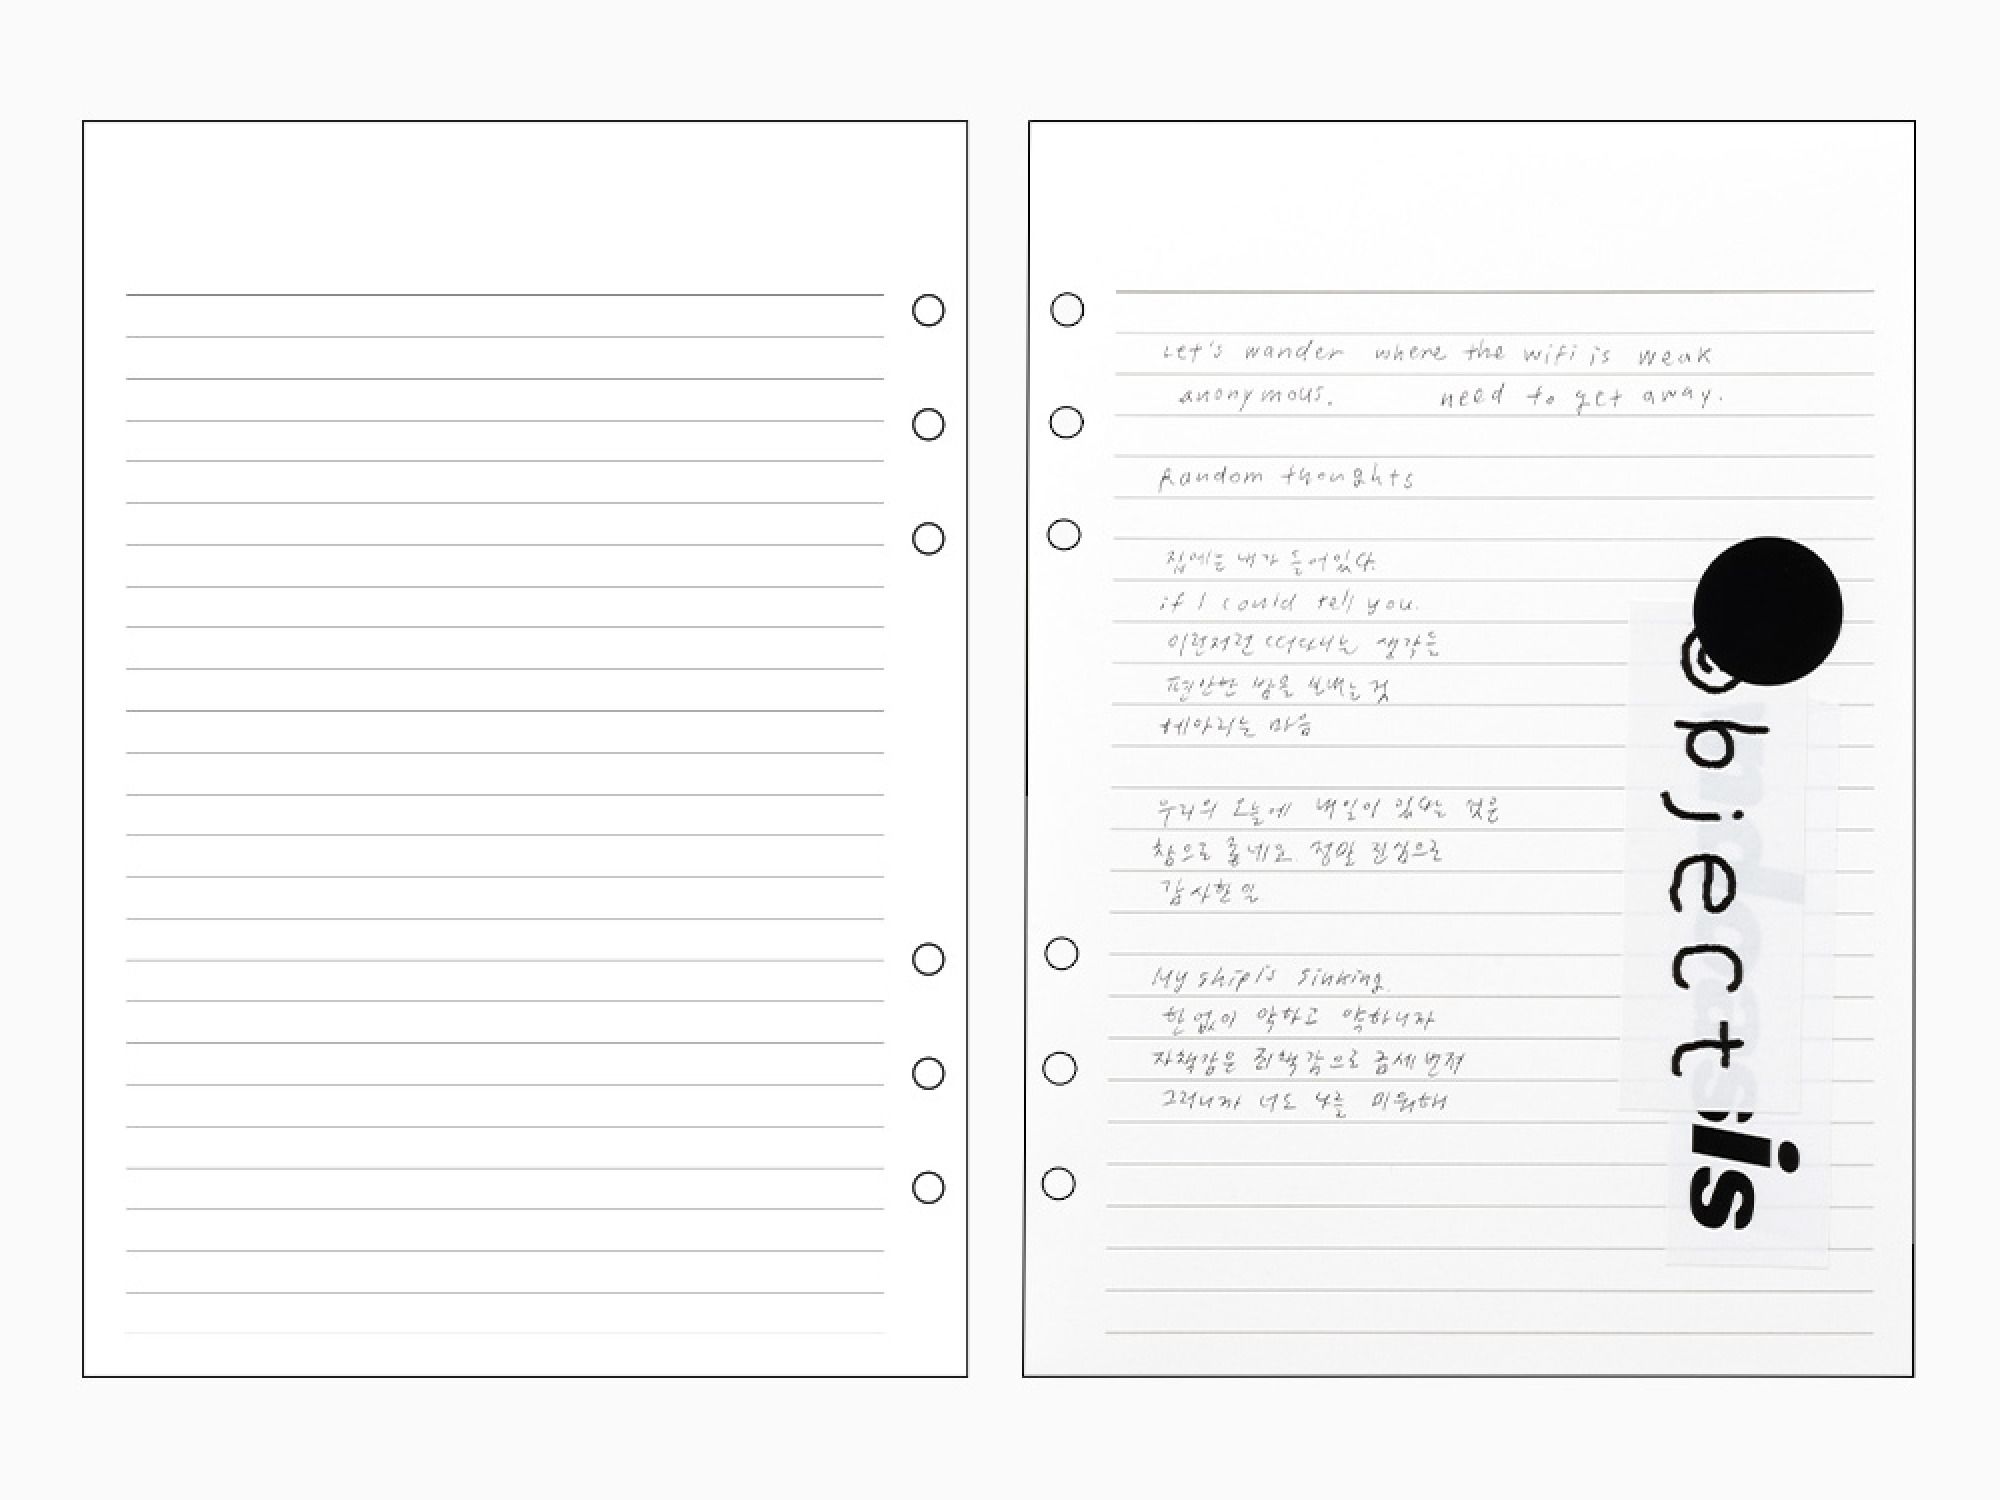 Let's wander where the wifi is weak
anonymous. need to get away.
Random thoughts
집에는 내가 들어있다.
if I could tell you.
이런저런 떠다니는 생각들
편안한 밤을 보내는 것
헤아리는 마음
우리의 오늘에 내일이 있다는 것은
참으로 좋네요. 정말 진심으로
감사한 일
My ship is sinking.
한없이 악하고 약하니까
자책감은 죄책감으로 금세 번져
그러니까 너도 나를 미워해
object
is